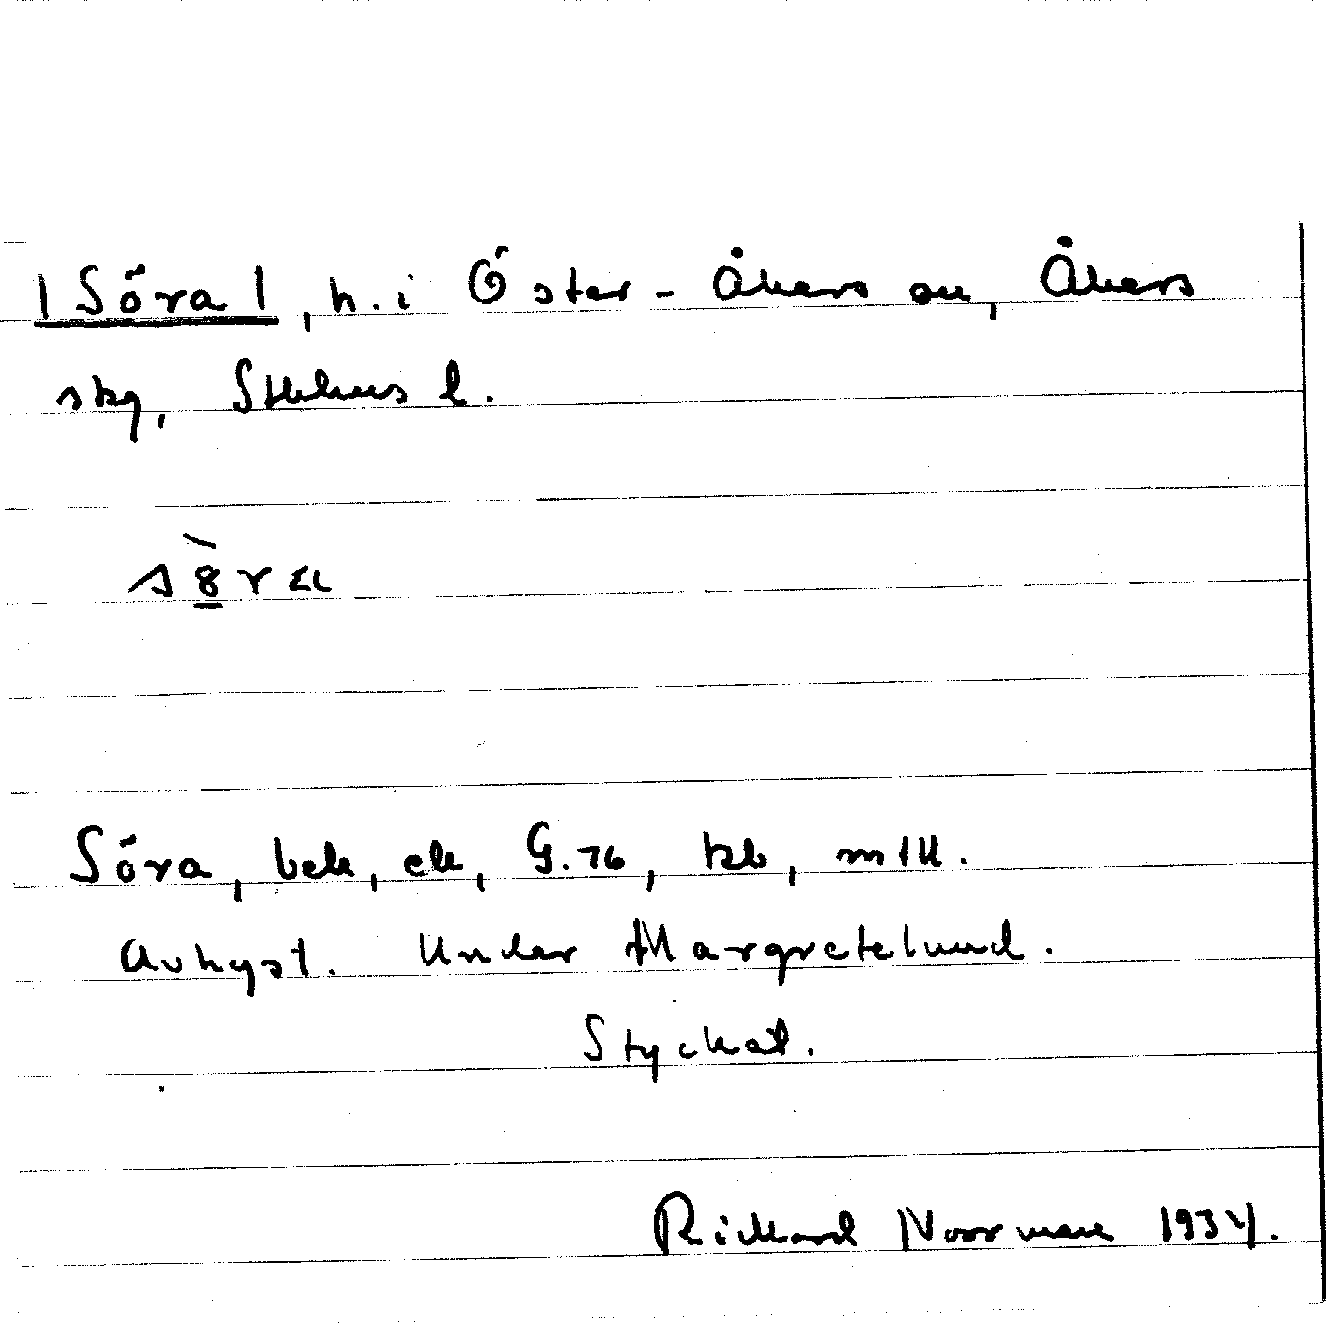 |Söra|, h. i Öster-Åkers sn, Åkers
skg, Sthlms l.
Söra, bek, ek, G.76, kb, mtll.
Avhyst. Under Margretelund.
Styckat.
Rickard Norrman 1934.